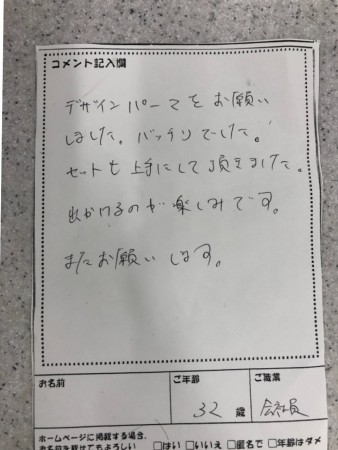 コメント記入欄
デザインパーマをお願い
しました。バッチリでした。
セットも上手にして頂きました。
出かけるのが楽しみです。
またお願いします。
お名前 ご年齢 ご職業
32 歳 会社員
ホームページに掲載する場合、
お名前を載せてもよろしい □はい □いいえ □匿名で □年齢はダメ